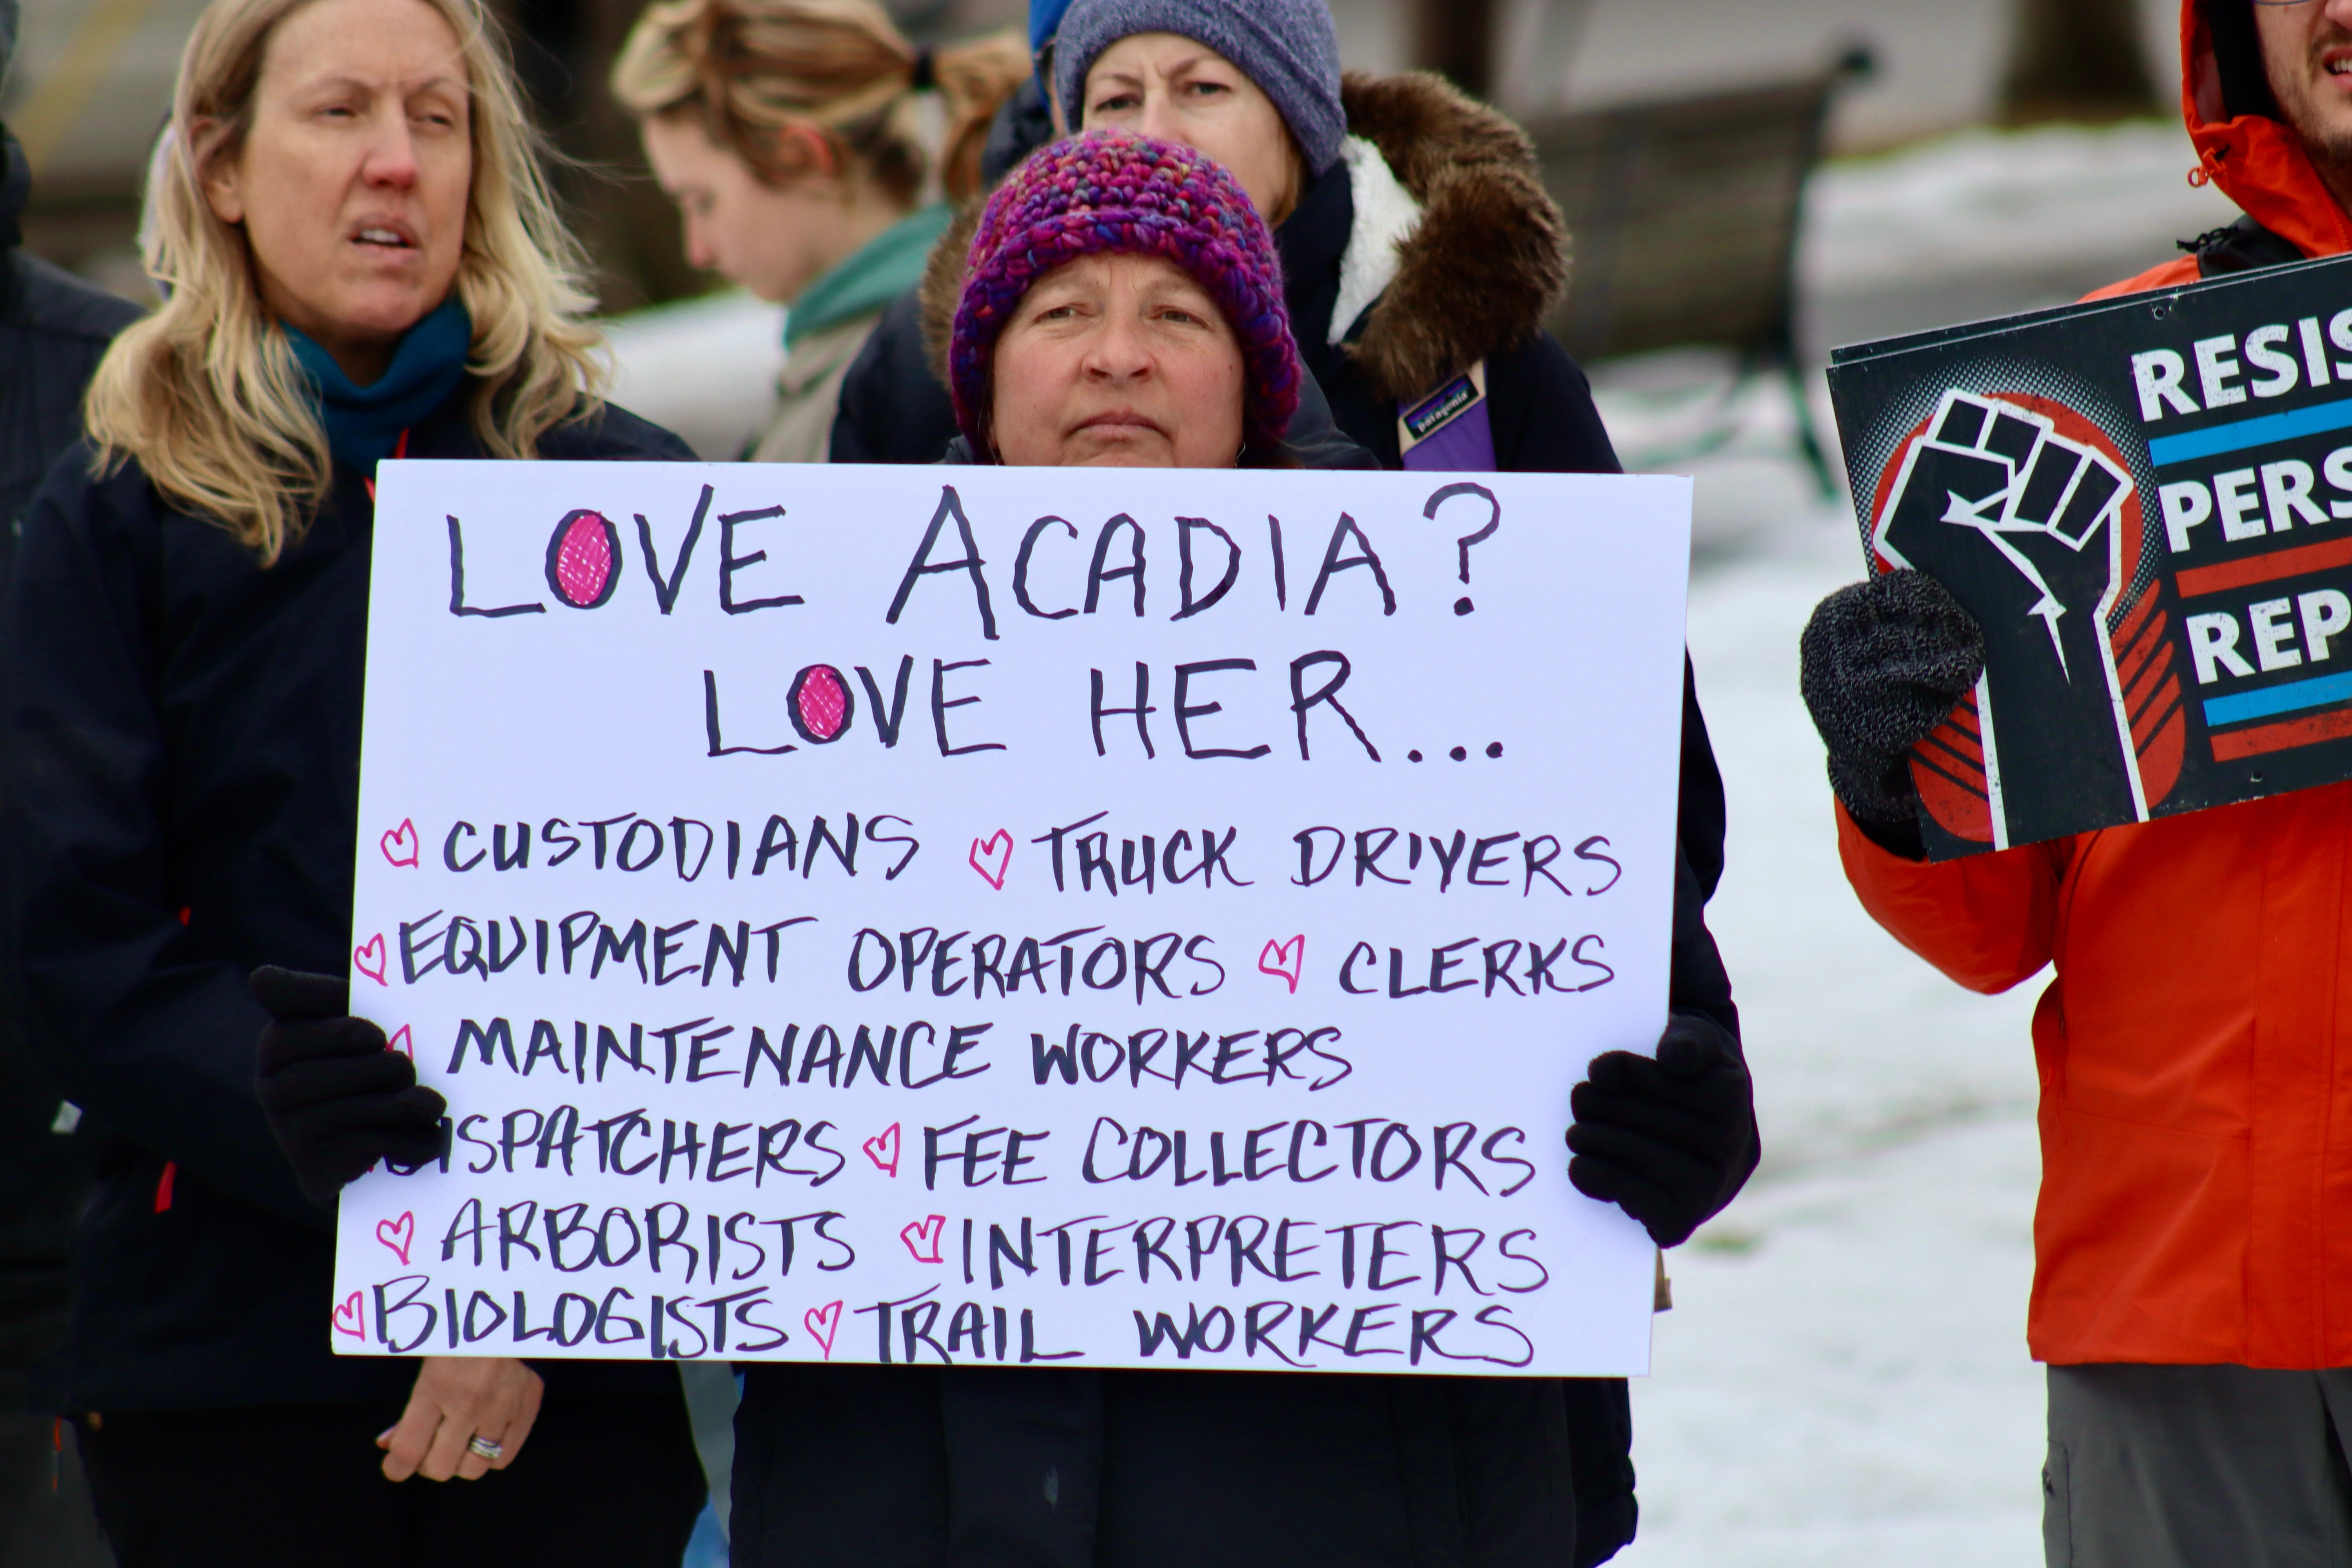 LOVE ACADIA?
LOVE HER...
CUSTODIANS TRUCK DRIVERS
EQUIPMENT OPERATORS CLERKS
MAINTENANCE WORKERS
ISPATCHERS FEE COLLECTORS
ARBORISTS INTERPRETERS
BIOLOGISTS TRAIL WORKERS
patagonia
RESIS
PERS
REP